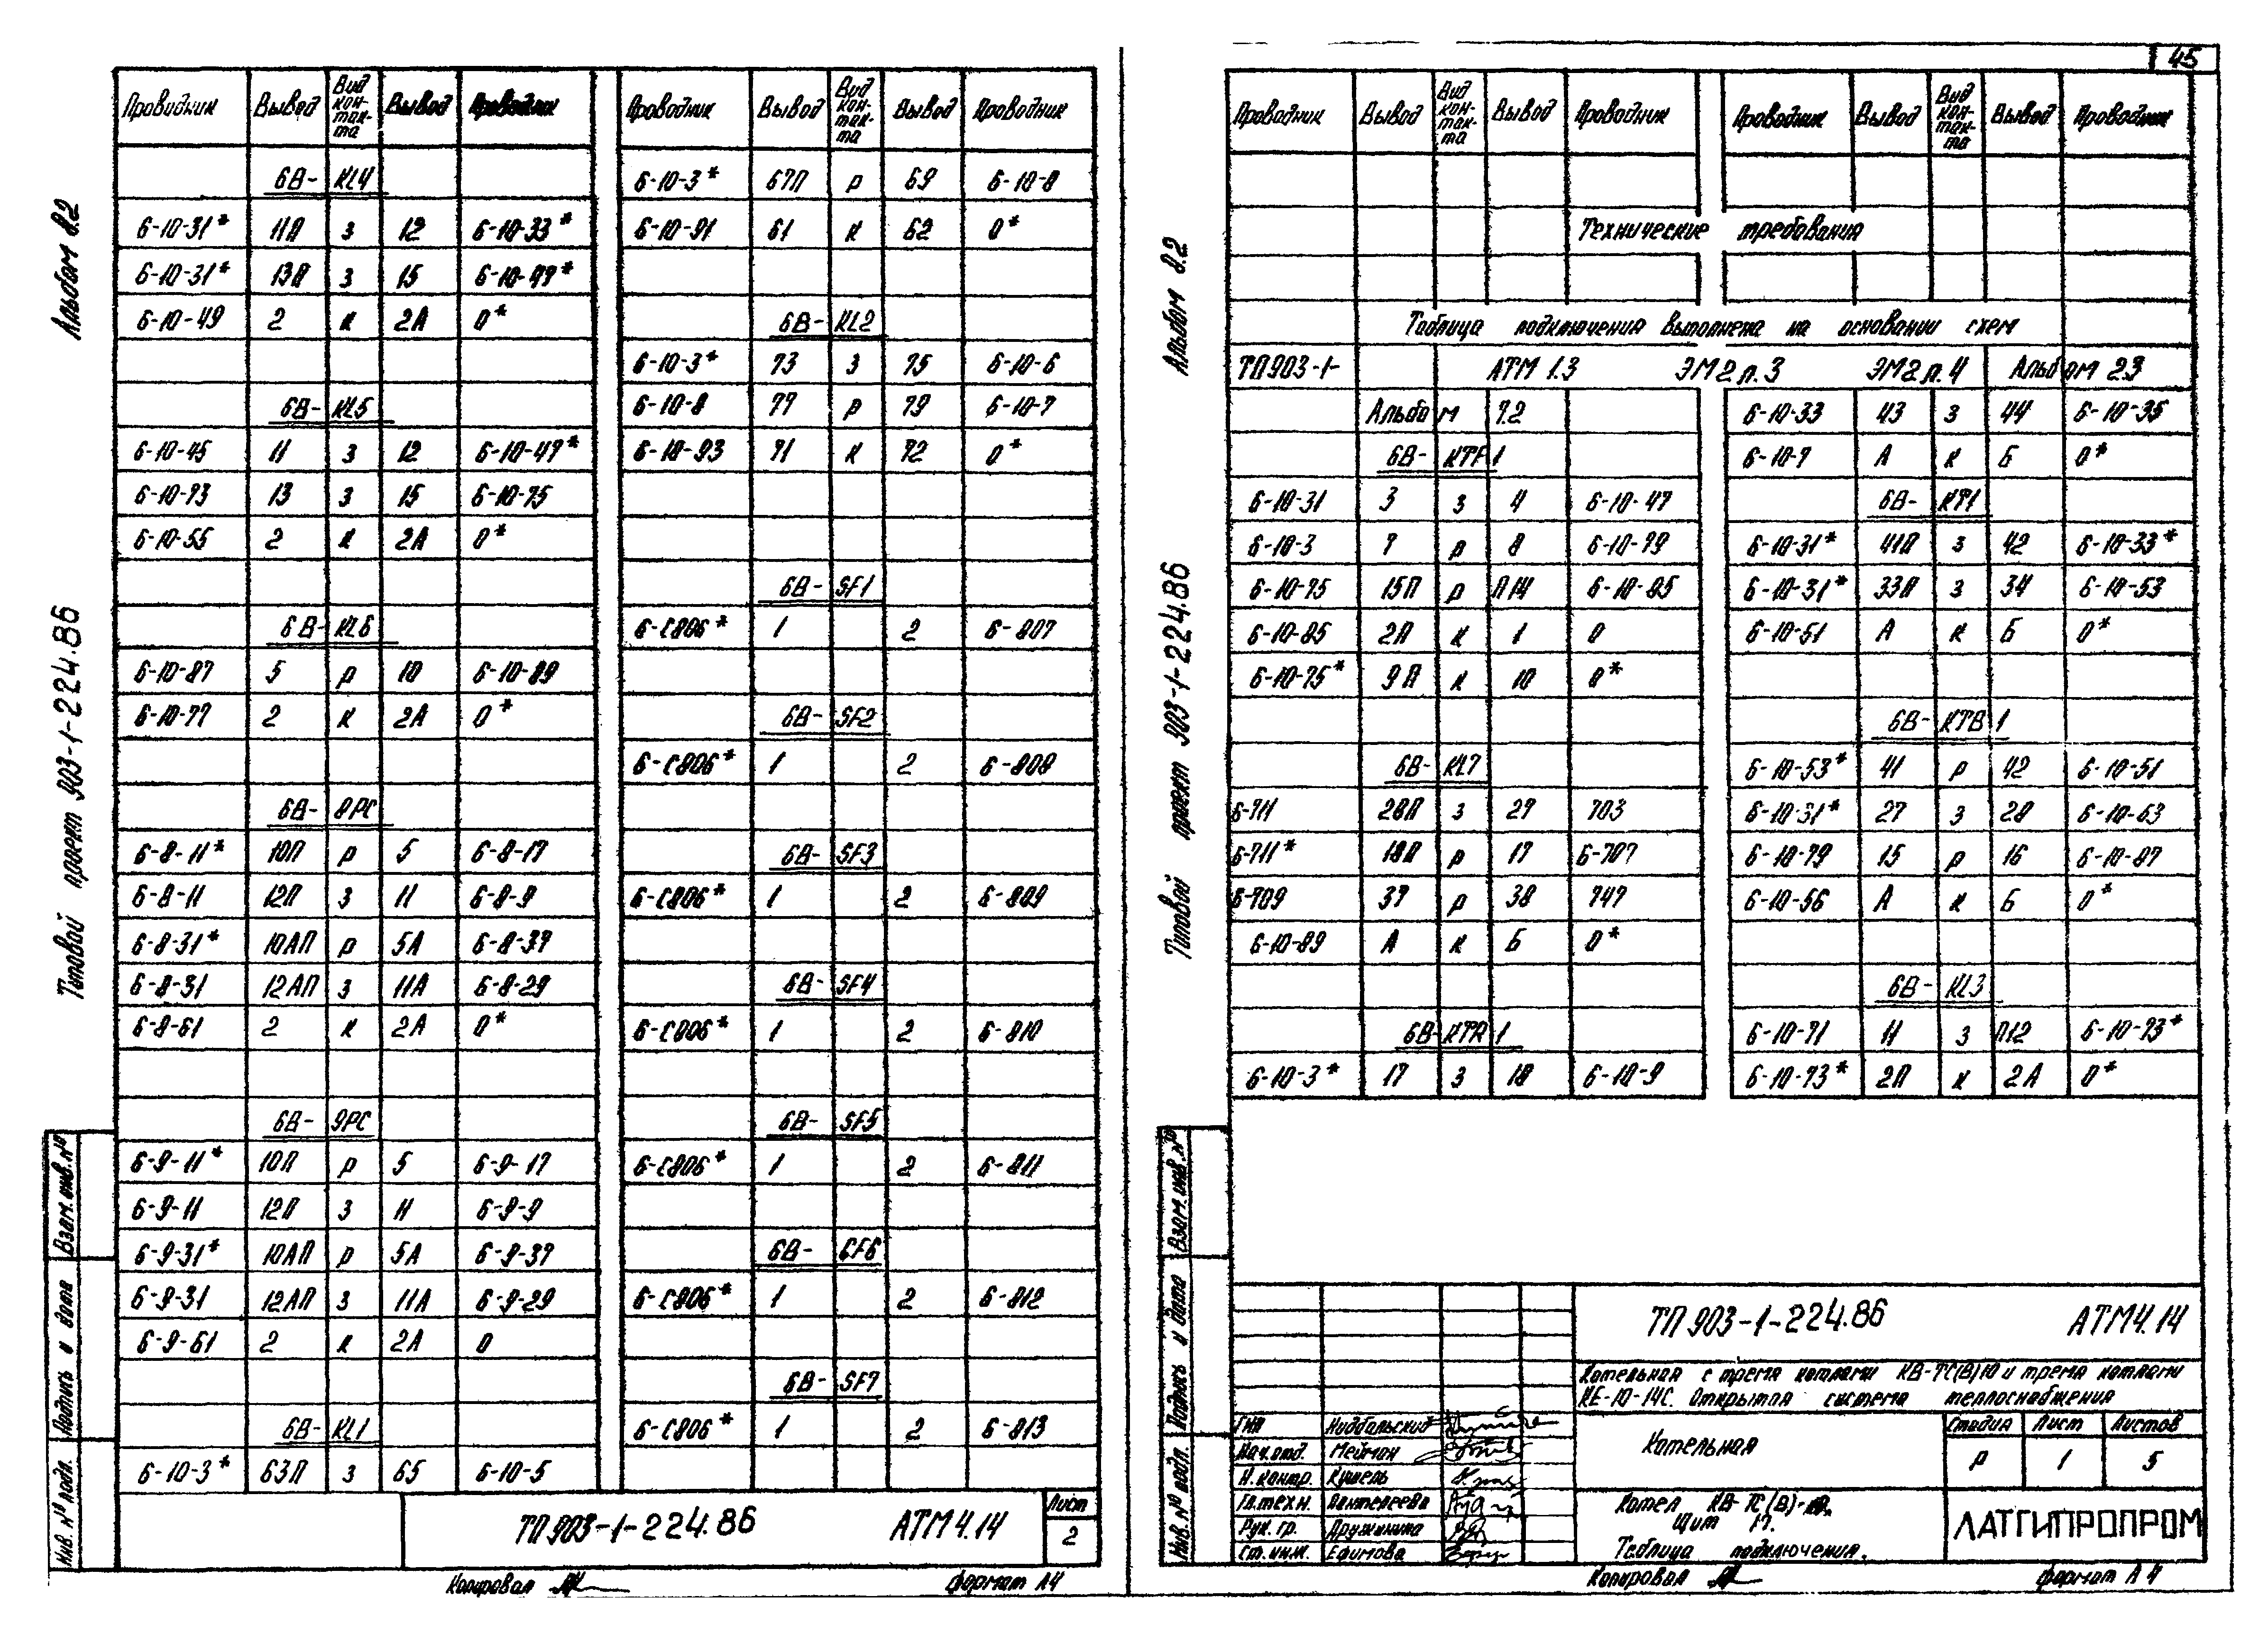 45
Альбом 8.2
Типовой проект 903-1-224.86
Взам. инв. №
Подпись и дата
Инв. № подл.
Проводник Вывод Вид кон-так-та Вывод Проводник
6В- KL4
6-10-31* 11П з 12 6-10-33*
6-10-31* 13П з 15 6-10-47*
6-10-49 2 к 2А 0*
6В- KL5
6-10-45 11 з 12 6-10-47*
6-10-73 13 з 15 6-10-75
6-10-55 2 к 2А 0*
6В- KL6
6-10-87 5 р 10 6-10-89
6-10-77 2 к 2А 0*
6В- 8РС
6-8-11* 10П р 5 6-8-17
6-8-11 12П з 11 6-8-9
6-8-31* 10АП р 5А 6-8-37
6-8-31 12АП з 11А 6-8-29
6-8-61 2 к 2А 0*
6В- 9РС
6-9-11* 10П р 5 6-9-17
6-9-11 12П з 11 6-9-9
6-9-31* 10АП р 5А 6-9-37
6-9-31 12АП з 11А 6-9-29
6-9-61 2 к 2А 0
6В- KL1
6-10-3* 63П з 65 6-10-5
Проводник Вывод Вид кон-так-та Вывод Проводник
6-10-3* 67П р 69 6-10-8
6-10-91 61 к 62 0*
6В- KL2
6-10-3* 73 з 75 6-10-6
6-10-8 77 р 79 6-10-7
6-10-93 71 к 72 0*
6В- SF1
6-С806* 1 2 6-807
6В- SF2
6-С806* 1 2 6-808
6В- SF3
6-С806* 1 2 6-809
6В- SF4
6-С806* 1 2 6-810
6В- SF5
6-С806* 1 2 6-811
6В- GF6
6-С806* 1 2 6-812
6В- SF7
6-С806* 1 2 6-813
ТП 903-1-224.86 АТМ4.14
Лист
2
Копировал
формат А4
Альбом 8.2
Типовой проект 903-1-224.86
Взам. инв. №
Подпись и дата
Инв. № подл.
Проводник Вывод Вид кон-так-та Вывод Проводник Проводник Вывод Вид кон-так-та Вывод Проводник
Технические требования
Таблица подключения выполнена на основании схем
ТП903-1- АТМ 1.3 ЭМ2л.3 ЭМ2л.4 Альбом 2.3
Альбом 7.2
6В- KTF1
6-10-31 3 з 4 6-10-47
6-10-3 7 р 8 6-10-79
6-10-75 15П р П14 6-10-85
6-10-85 2П к 1 0
6-10-75* 9П к 10 0*
6В- KL7
6-711 28П з 27 703
6-711* 18П р 17 6-707
6-709 37 р 38 747
6-10-89 А к Б 0*
6В- KTR1
6-10-3* 17 з 18 6-10-9
6-10-33 43 з 44 6-10-35
6-10-7 А к Б 0*
6В- КТ1
6-10-31* 41П з 42 6-10-33*
6-10-31* 33П з 34 6-10-53
6-10-51 А к Б 0*
6В- КТВ1
6-10-53* 41 р 42 6-10-51
6-10-31* 27 з 28 6-10-63
6-10-79 15 р 16 6-10-87
6-10-56 А к Б 0*
6В- KL3
6-10-71 11 з П12 6-10-73*
6-10-73* 2П к 2А 0*
ТП 903-1-224.86 АТМ4.14
Котельная с тремя котлами КВ-ТС(В)10 и тремя котлами
КЕ-10-14С. Открытая система теплоснабжения
ГИП Нидбальский
Нач.отд. Мейман
Н. контр. Кушель
Гл.техн. Пантелеева
Рук. гр. Дружинина
Ст. инж. Ефимова
Котельная
Стадия Лист Листов
Р 1 5
Котел КВ-ТС(В)-10.
Щит 17.
Таблица подключения.
ЛАТГИПРОПРОМ
Копировал
формат А4